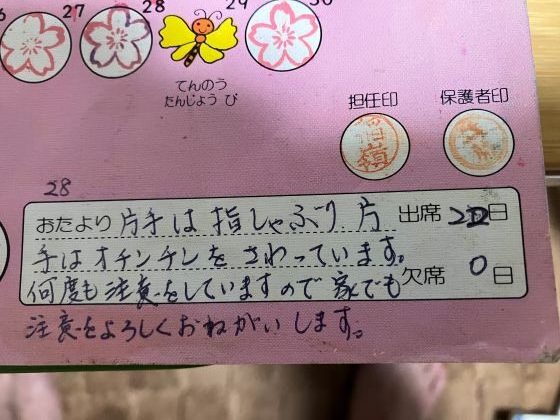 27 28 29 30
てんのう
たんじょう び
担任印 保護者印
28
おたより 片手は指しゃぶり 片 出席 22日
手はオチンチンをさわっています。
何度も注意をしていますので 家でも 欠席 0日
注意をよろしくおねがいします。